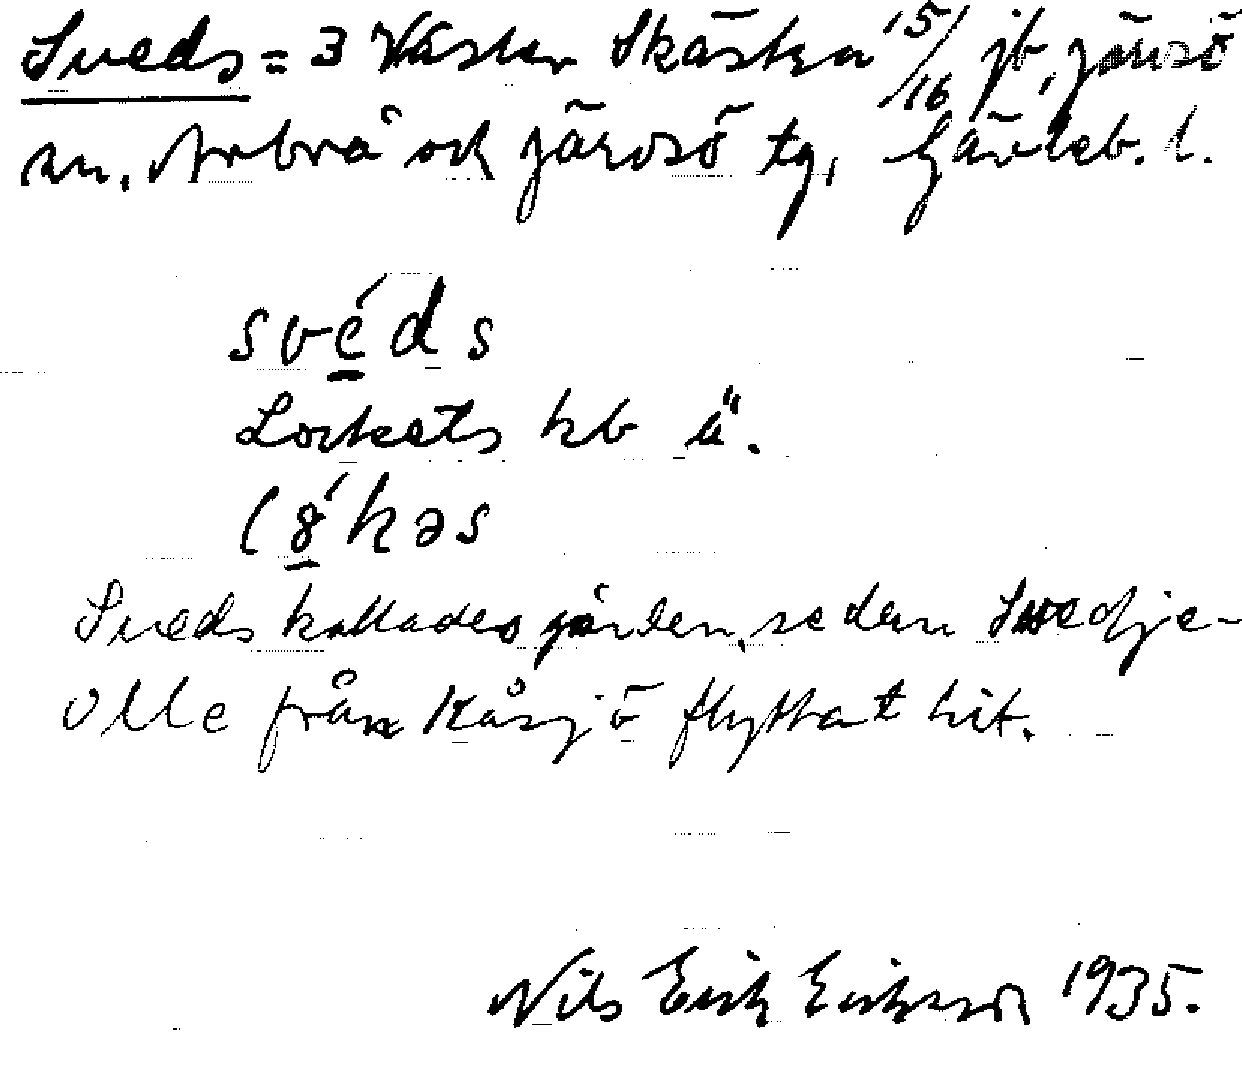 Sveds = 3 Väster Skästra 15/16 jb, Järvsö
sn. Arbrå och Järvsö tg, Gävleb. l.
svéds
kb ä.
Sveds kallades gården, sedan Svedje-
Olle från Kåsjö flyttat hit.
Nils Erik Eriksson 1935.